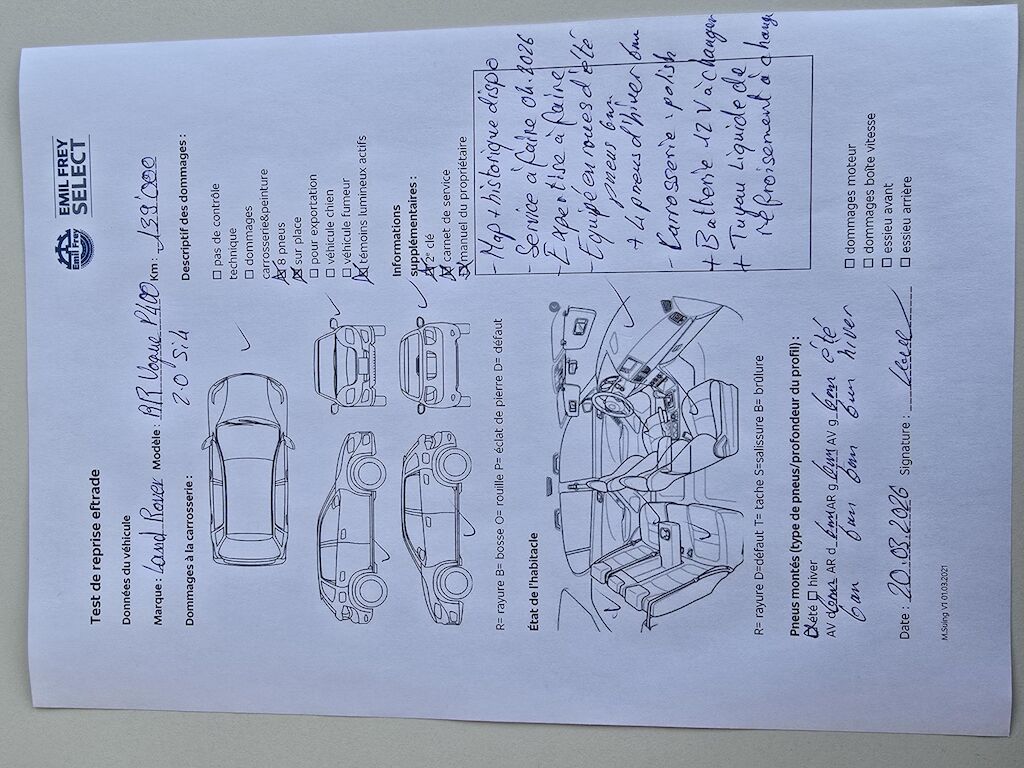 EMIL FREY
SELECT
Emil Frey
Test de reprise eftrade
Données du véhicule
Marque : Land Rover Modèle : RR Vogue P400 Km: 139'000
2.0 Si4
Dommages à la carrosserie :
Descriptif des dommages :
☐ pas de contrôle
technique
☐ dommages
carrosserie&peinture
☒ 8 pneus
☒ sur place
☐ pour exportation
☐ véhicule chien
☐ véhicule fumeur
☒ témoins lumineux actifs
Informations
supplémentaires :
☒ 2° clé
☒ carnet de service
☒ manuel du propriétaire
R= rayure B= bosse O= rouille P= éclat de pierre D= défaut
État de l'habitacle
- Map + historique dispo
- Service à faire 04.2026
- Expertise à faire
- Equipé en roues d'été
pneus 6m
+ 4 pneus d'hiver 6m
- Carrosserie : polish
+ Batterie 12 V à changer
+ Tuyau liquide de
refroisement à change
R= rayure D=défaut T= tache S=salissure B= brûlure
Pneus montés (type de pneus/profondeur du profil) :
☒ été ☐ hiver
AV d 6mm AR d 6mm AR g 6mm AV g 6mm été
6mm 6mm 6mm 6mm hiver
☐ dommages moteur
☐ dommages boîte vitesse
☐ essieu avant
☐ essieu arrière
Date : 20.03.2026 Signature :
M.Suing V1 01.03.2021